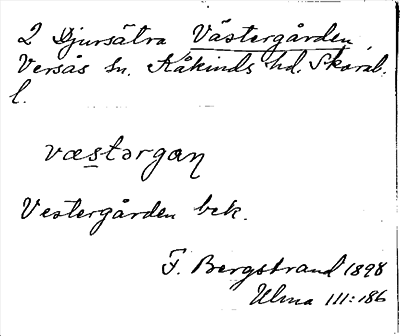 2 Djursätra Västergården,
Versås sn. Kåkinds hd. Skarab.
l.
væstərgaɳ
Vestergården bek.
F. Bergstrand 1898
Ulma III:186